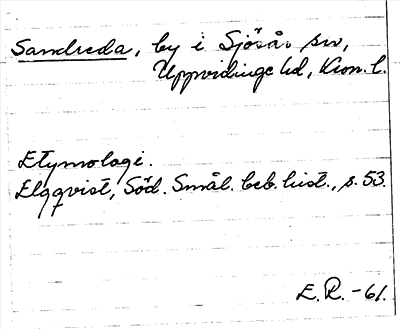 Sandreda, by i Sjösås sn,
Uppvidinge hd, Kron. l.
Etymologi.
Elgqvist, Söd. Smål. beb. hist., s. 53.
E. R. -61.